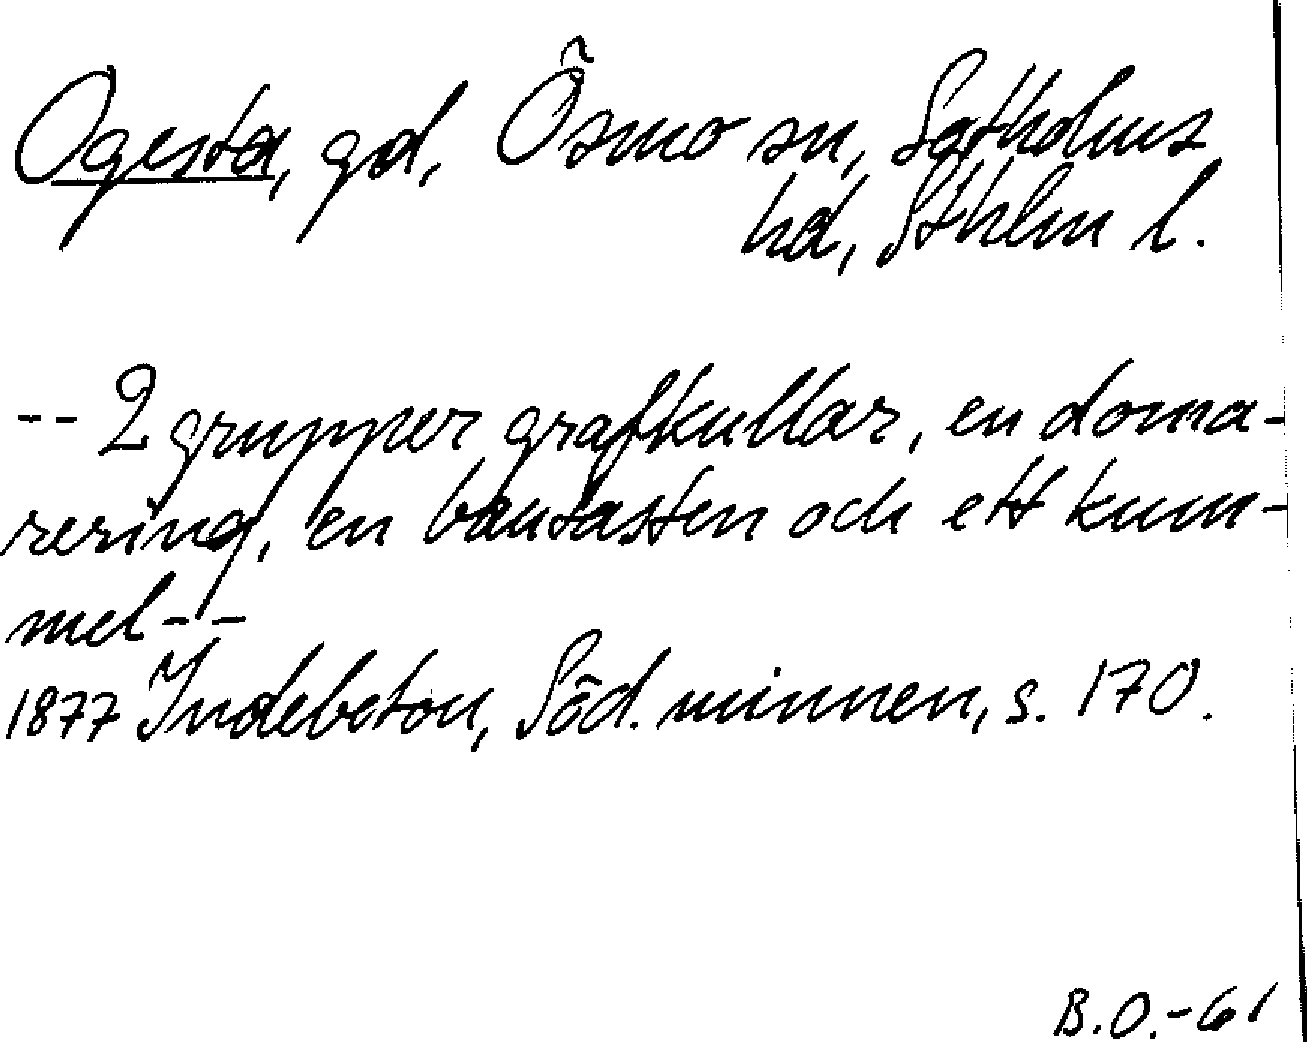 Ogesta, gd, Ösmo sn, Sotholms
hd, Sthlm l.
-- 2 grupper grafkullar, en doma-
rering, en bautasten och ett kum-
mel--
1877 Indebetou, Söd. minnen, s. 170.
B.O.-61